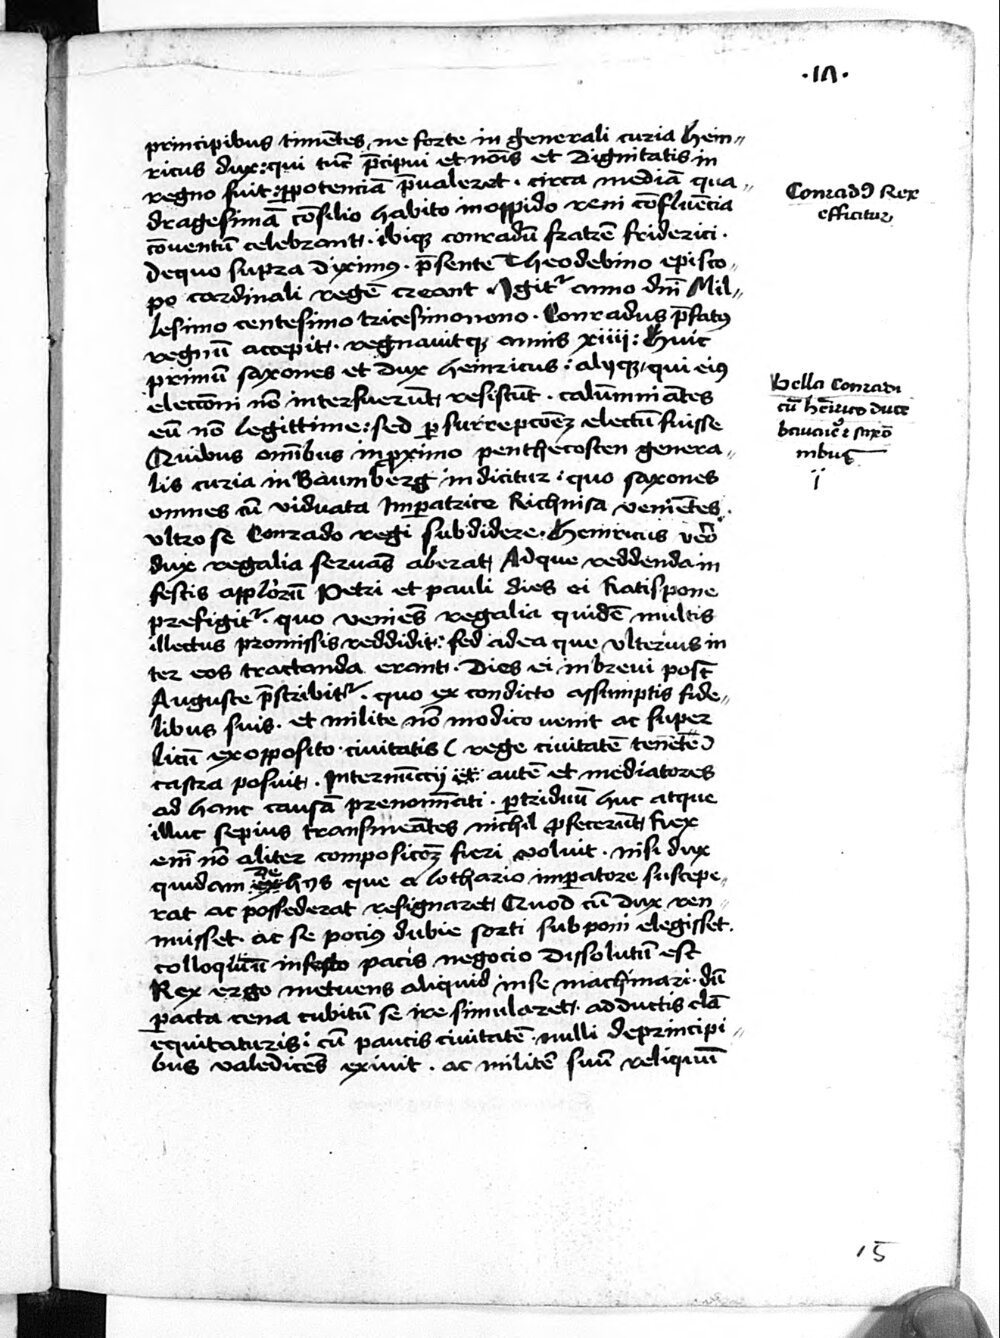 ·1Λ·
principibus timētes, ne forte in generali curia Hein〃
ricus dux: qui tūc p̄cipui et nōis et dignitatis in
regno fuit: p̱ potenciā p̄valeret · circa mediā qua〃
dragesimā cōsilio habito in oppido reni cōfluēcia
cōventū celebrant · ibiqꝫ conradū fratrē friderici ·
de quo supra diximꝰ · p̄sente Theodebino episco〃
po cardinali regē creant · Igitʳ anno dn̄i Mil〃
lesimo centesimo tricesimonono · Conradus p̄fatꝰ
regnū accepit · regnavitqꝫ annis xiiii: Huic
primū saxones et dux heinricus: aliiqꝫ qui eiꝰ
eleccōni nō interfuerūt, resistūt · calūmniātes
eū nō legittime: sed ꝑ surrepcōeꝫ electū fuisse
Quibus om̄ibus in ꝓximo penthecosten genera〃
lis curia in Baumberg indicitur: quo saxones
omnes cū viduata Imꝑatrice Richnisa veniētes ·
ultro se Conrado regi subdidere · Heinricus vēo
dux regalia servās aberat Ad que reddenda in
festis ap̄lorū Petri et pauli dies ei Ratispone
prefigitʳ · quo veniēs regalia quidē multis
illectus promissis reddidit: sed ad ea que ulterius in
ter eos tractanda erant · Dies ei in brevi post
Auguste p̄scribitʳ · quo ex condicto assumptis fide〃
libus suis · et milite nō modico venit ac super
licū ex opposito · civitatis ( rege civitatē tenēte )
castra posuit · Internūccii autē et mediatores
ad hanc causā prenom̄iati · ꝑ triduū huc atque
illuc sepius transmeātes nichil ꝓfecerūt Rex
eni nō aliter composicōeꝫ fieri voluit · nisi dux
quidam de hiis que a lothario imꝑatore suscepe〃
rat ac possederat resignaret Quod cū dux ren
nuisset · ac se pociꝰ dubie sorti subponi elegisset.
colloquiū infecto pacis negocio dissolutū est
Rex ergo metuens aliquid in se machinari · dū
ꝑacta cena cubitū se ire simularet · adductis clā
equitaturis: cū paucis civitatē · nulli de principi〃
bus valedicēs exivit · ac militē suū reliquū
Conradꝰ Rex
efficitur
bella Conradi
cū hērico duce
bauarie ⁊ saxō
nibus
ii
15